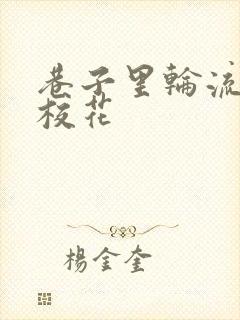 巷子里輪流
校花
楊金奎